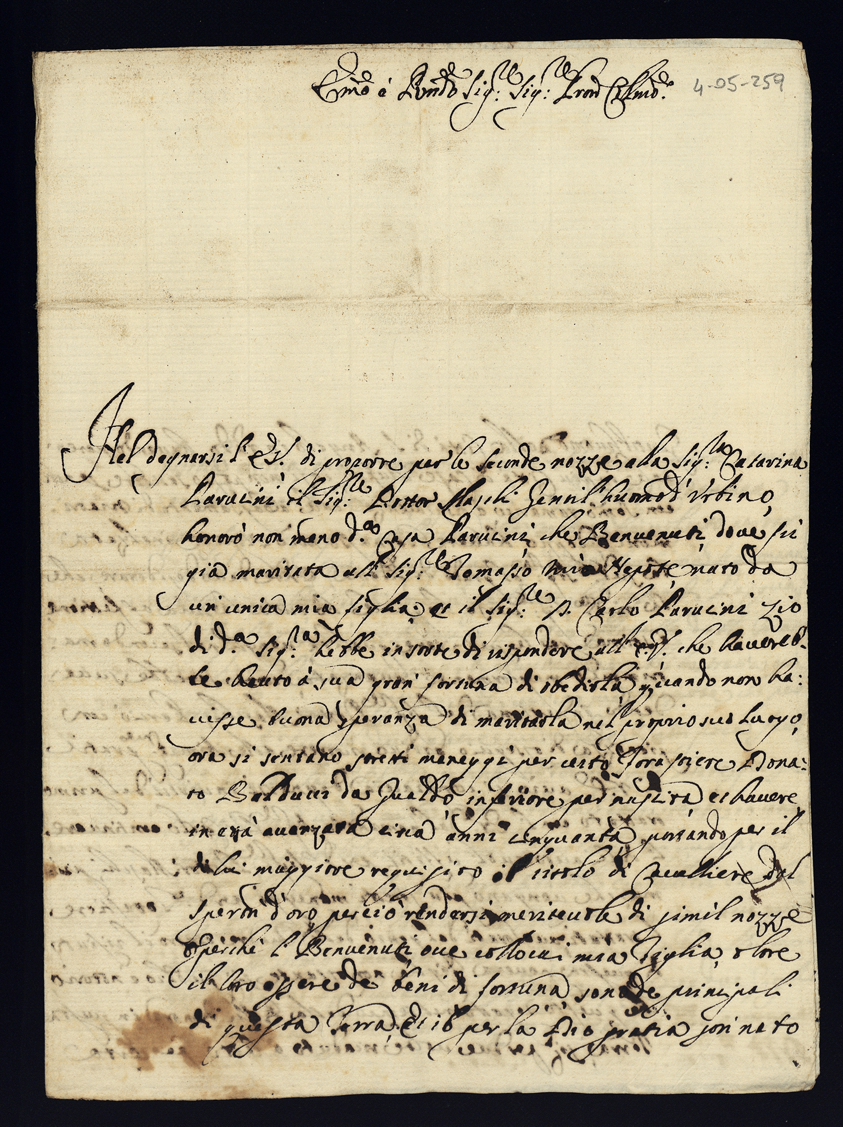 Emo e Rvndo Sig:re Sig:re Pron Collmo.
4-05-259
Nel degnarsi l'E.V. di proporre per le seconde nozze alla Sig:ra Catarina
Parucini il Sig:re Dottor Gentil'huomo d'Urbino,
honorò non meno d.a Casa Parucini che Benvenuti dove fu
già maritata all Sig:re Tomasso mio Nepote nato da
un'unica mia figlia, et il Sig:re D. Carlo Parucini Zio
di d.a Sig.ra hebbe in sorte di rispondere all'E.V. che havereb-
be hauto à sua gran fortuna di obedirla quando non ha:
vesse buona speranza di maritarla nel proprio suo luogo,
ora si sentano stretti maneggi per certo forastiere Dona:
to Balducci da Gualdo inferiore per nascita et havere
in età avanzata circa anni cinquanta portando per il
di lui maggiore requisito il titolo di Cavalliere dal
speron d'oro perciò rendersi meritevole di simil nozze
e perche l Benvenuti ove collocai mia figlia, oltre
il loro essere de beni di fortuna sono de principali
di questa Terra, et io per la Dio gratia son nato